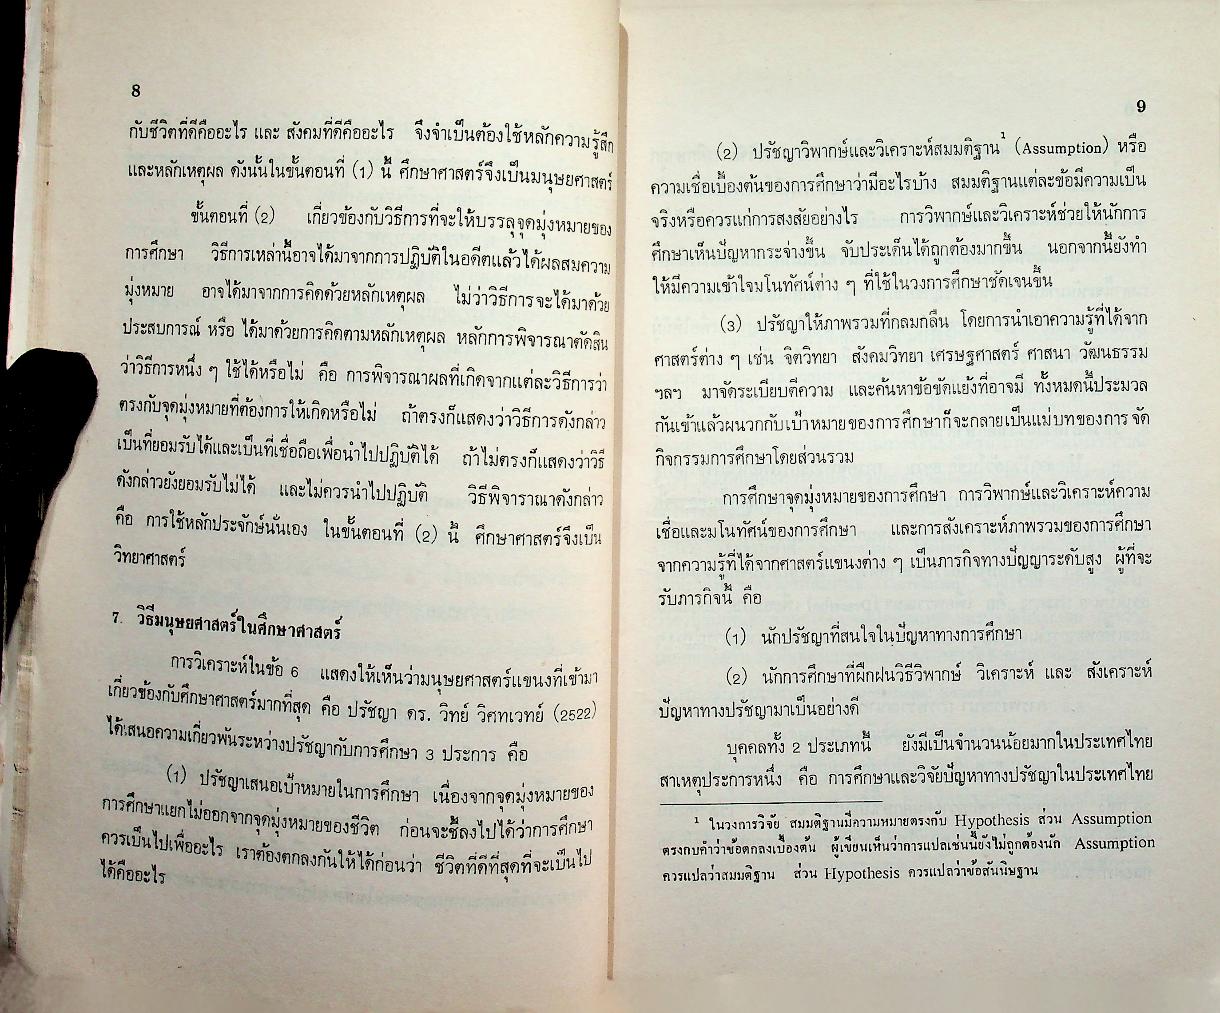 8
กับชีวิตที่ดีคืออะไร และ สังคมที่ดีคืออะไร จึงจำเป็นต้องใช้หลักความรู้สึก
และหลักเหตุผล ดังนั้นในขั้นตอนที่ (1) นี้ ศึกษาศาสตร์จึงเป็นมนุษยศาสตร์
ขั้นตอนที่ (2) เกี่ยวข้องกับวิธีการที่จะให้บรรลุจุดมุ่งหมายของ
การศึกษา วิธีการเหล่านี้อาจได้มาจากการปฏิบัติในอดีตแล้วได้ผลสมความ
มุ่งหมาย อาจได้มาจากการคิดด้วยหลักเหตุผล ไม่ว่าวิธีการจะได้มาด้วย
ประสบการณ์ หรือ ได้มาด้วยการคิดตามหลักเหตุผล หลักการพิจารณาตัดสิน
ว่าวิธีการหนึ่ง ๆ ใช้ได้หรือไม่ คือ การพิจารณาผลที่เกิดจากแต่ละวิธีการว่า
ตรงกับจุดมุ่งหมายที่ต้องการให้เกิดหรือไม่ ถ้าตรงก็แสดงว่าวิธีการดังกล่าว
เป็นที่ยอมรับได้และเป็นที่เชื่อถือเพื่อนำไปปฏิบัติได้ ถ้าไม่ตรงก็แสดงว่าวิธี
ดังกล่าวยังยอมรับไม่ได้ และไม่ควรนำไปปฏิบัติ วิธีพิจาราณาดังกล่าว
คือ การใช้หลักประจักษ์นั่นเอง ในขั้นตอนที่ (2) นี้ ศึกษาศาสตร์จึงเป็น
วิทยาศาสตร์
7. วิธีมนุษยศาสตร์ในศึกษาศาสตร์
การวิเคราะห์ในข้อ 6 แสดงให้เห็นว่ามนุษยศาสตร์แขนงที่เข้ามา
เกี่ยวข้องกับศึกษาศาสตร์มากที่สุด คือ ปรัชญา ดร. วิทย์ วิศทเวทย์ (2522)
ได้เสนอความเกี่ยวพันระหว่างปรัชญากับการศึกษา 3 ประการ คือ
(1) ปรัชญาเสนอเป้าหมายในการศึกษา เนื่องจากจุดมุ่งหมายของ
การศึกษาแยกไม่ออกจากจุดมุ่งหมายของชีวิต ก่อนจะชี้ลงไปได้ว่าการศึกษา
ควรเป็นไปเพื่ออะไร เราต้องตกลงกันให้ได้ก่อนว่า ชีวิตที่ดีที่สุดที่จะเป็นไป
ได้คืออะไร
9
(2) ปรัชญาวิพากษ์และวิเคราะห์สมมติฐาน¹ (Assumption) หรือ
ความเชื่อเบื้องต้นของการศึกษาว่ามีอะไรบ้าง สมมติฐานแต่ละข้อมีความเป็น
จริงหรือควรแก่การสงสัยอย่างไร การวิพากษ์และวิเคราะห์ช่วยให้นักการ
ศึกษาเห็นปัญหากระจ่างขึ้น จับประเด็นได้ถูกต้องมากขึ้น นอกจากนี้ยังทำ
ให้มีความเข้าใจมโนทัศน์ต่าง ๆ ที่ใช้ในวงการศึกษาชัดเจนขึ้น
(3) ปรัชญาให้ภาพรวมที่กลมกลืน โดยการนำเอาความรู้ที่ได้จาก
ศาสตร์ต่าง ๆ เช่น จิตวิทยา สังคมวิทยา เศรษฐศาสตร์ ศาสนา วัฒนธรรม
ฯลฯ มาจัดระเบียบตีความ และค้นหาข้อขัดแย้งที่อาจมี ทั้งหมดนี้ประมวล
กันเข้าแล้วผนวกกับเป้าหมายของการศึกษาก็จะกลายเป็นแม่บทของการ จัด
กิจกรรมการศึกษาโดยส่วนรวม
การศึกษาจุดมุ่งหมายของการศึกษา การวิพากษ์และวิเคราะห์ความ
เชื่อและมโนทัศน์ของการศึกษา และการสังเคราะห์ภาพรวมของการศึกษา
จากความรู้ที่ได้จากศาสตร์แขนงต่าง ๆ เป็นภารกิจทางปัญญาระดับสูง ผู้ที่จะ
รับภารกิจนี้ คือ
(1) นักปรัชญาที่สนใจในปัญหาทางการศึกษา
(2) นักการศึกษาที่ฝึกฝนวิธีวิพากษ์ วิเคราะห์ และ สังเคราะห์
ปัญหาทางปรัชญามาเป็นอย่างดี
บุคคลทั้ง 2 ประเภทนี้ ยังมีเป็นจำนวนน้อยมากในประเทศไทย
สาเหตุประการหนึ่ง คือ การศึกษาและวิจัยปัญหาทางปรัชญาในประเทศไทย
¹ ในวงการวิจัย สมมติฐานมีความหมายตรงกับ Hypothesis ส่วน Assumption
ตรงกับคำว่าข้อตกลงเบื้องต้น ผู้เขียนเห็นว่าการแปลเช่นนี้ยังไม่ถูกต้องนัก Assumption
ควรแปลว่าสมมติฐาน ส่วน Hypothesis ควรแปลว่าข้อสันนิษฐาน